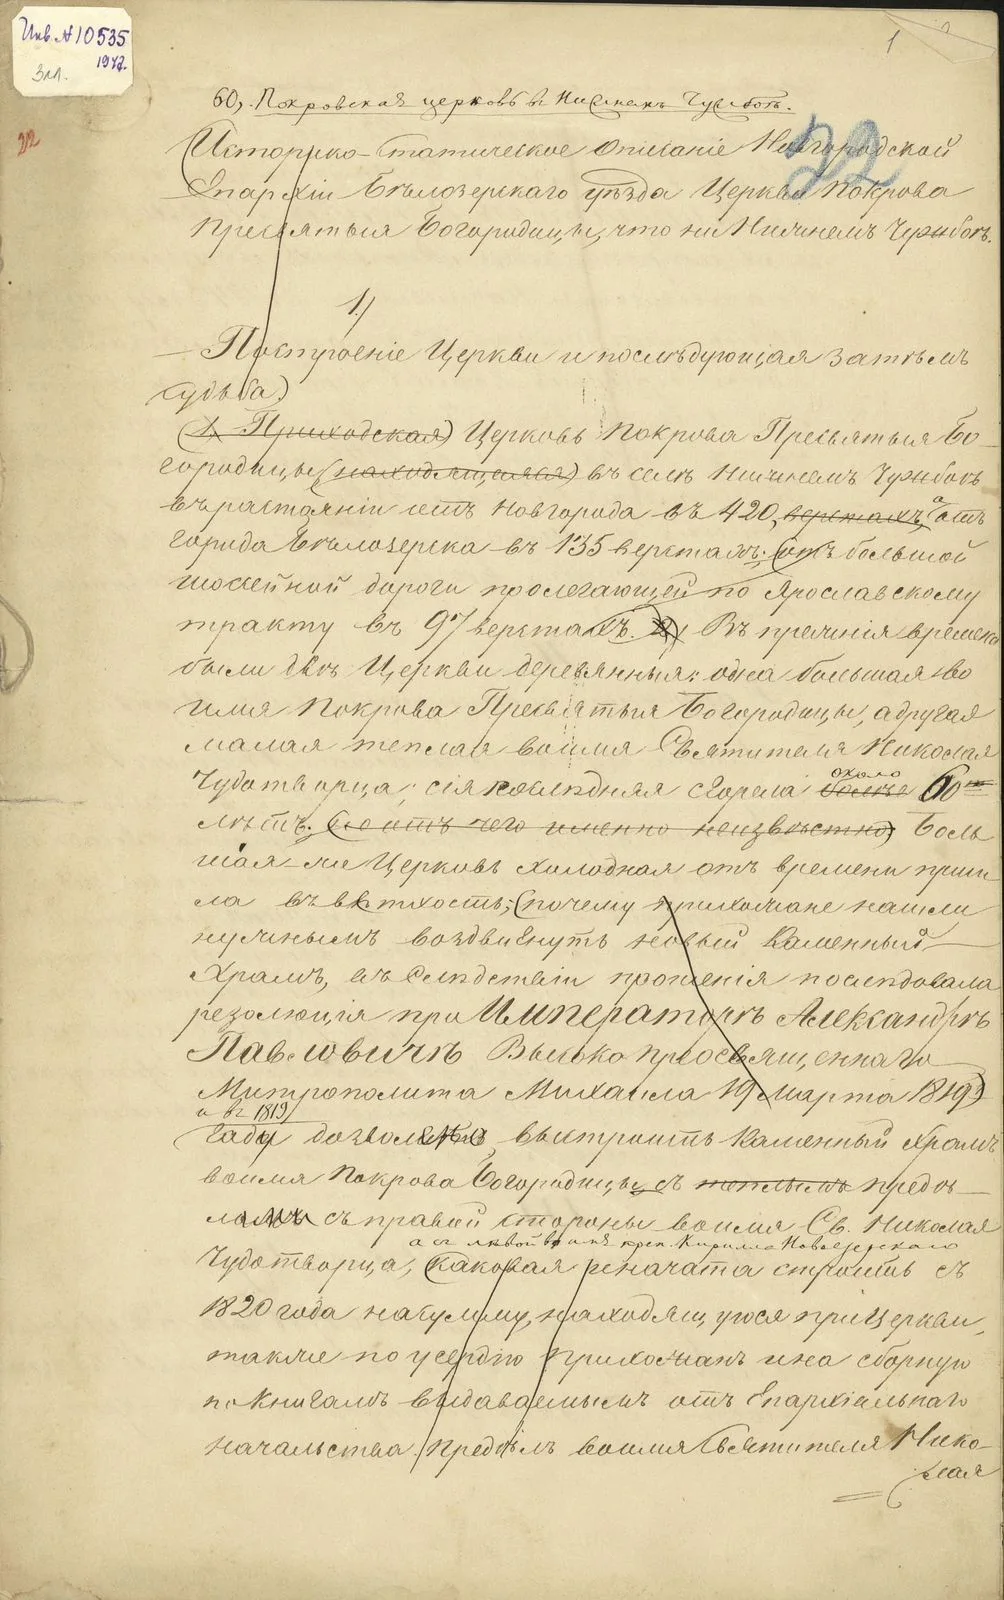 Инв. № 10535
1947.
3 лл.
1
22
22
60). Покровская церковь в Нижнемъ Чужбоѣ.
Историко-Статическое описаніе Новгородской
Епархіи Бѣлозерскаго уѣзда Церкви Покрова
Пресвятыя Богородицы, что на Нижнемъ Чужбоѣ.
1.)
Построеніе Церкви и послѣдующая затѣмъ
судьба)
(1. Приходская) Церковь Покрова Пресвятыя Бо-
городицы (находящаяся) въ селѣ Нижнемъ Чужбоѣ
въ растояніи отъ Новгорода въ 420, верстахъ, а отъ
города Бѣлозерска въ 135 верстахъ; (отъ большой
шоссейной дороги пролегающей по Ярославскому
тракту въ 97 верстахъ. 2) Въ прежнія времена
были двѣ Церкви деревянныя: одна большая во
имя Покрова Пресвятыя Богородицы, а другая
малая теплая во имя Святителя Николая
Чудотворца; сія послѣдняя сгорела болѣе около 60
лѣтъ. (но отъ чего именно неизвѣстно) Боль
шая же Церковь холодная отъ времени приш
ла въ ветхость; (почему прихожане нашли
нужнымъ воздвигнуть новый каменный
Храмъ, въ слѣдствіи прошенія последовала
резолюція при Императорѣ Александрѣ
Павловичѣ Высокопреосвященнаго
Митрополита Михаила 19 марта 1819)
и въ 1819
года дозволено выстроить каменный Храмъ
во имя Покрова Богородицы съ теплымъ предѣ
ломъ съ правой стороны во имя Св. Николая
а съ лѣвой во имя преп. Кирилла Новоезерскаго
Чудотворца, (каковая и начата строить съ
1820 года на сумму, находящуюся при Церкви,
также по усердію прихожанъ и на сборную
по книгамъ выдаваемымъ отъ Епархіальнаго
начальства. Предѣлъ во имя Святителя Нико-
лая